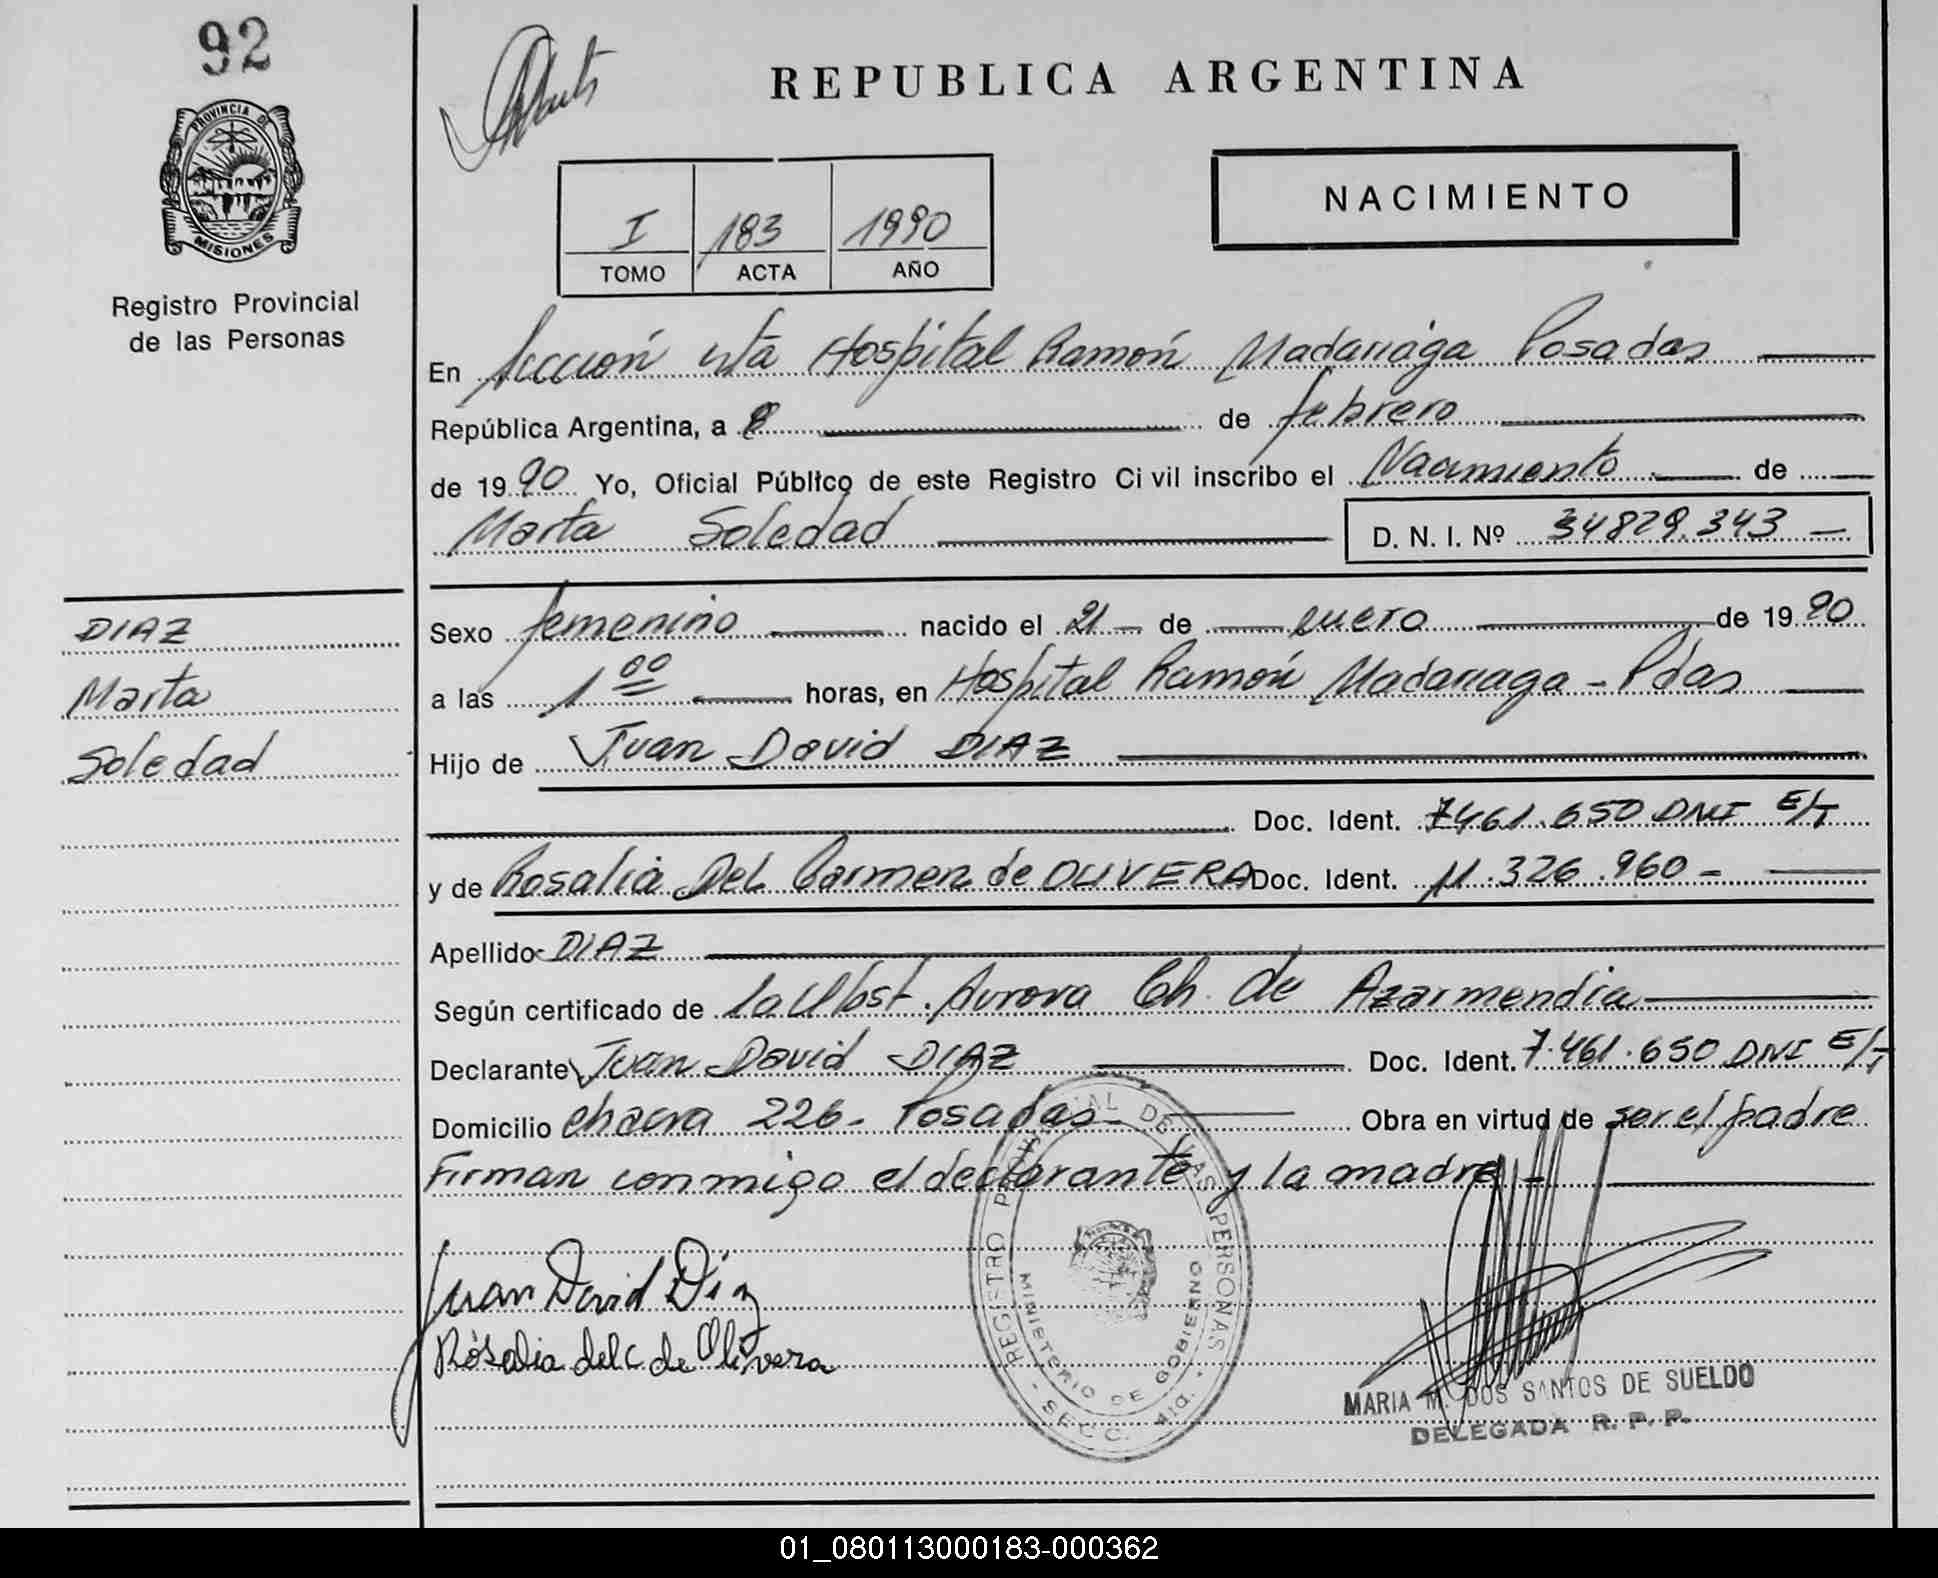 92
PROVINCIA DE
MISIONES
Registro Provincial
de las Personas
REPUBLICA ARGENTINA
NACIMIENTO
I 183 1990
TOMO ACTA AÑO
En Sección 4ta Hospital Ramón Madariaga Posadas
República Argentina, a 8 de febrero
de 1990 Yo, Oficial Público de este Registro Civil inscribo el Nacimiento de
Marta Soledad D. N. I. Nº 34829.343
DIAZ
Marta
Soledad
Sexo femenino nacido el 21 de enero de 1990
a las 1 00 horas, en Hospital Ramón Madariaga - Pdas
Hijo de Juan David DIAZ
Doc. Ident. 7461.650 DNI E/T
y de Rosalia Del Carmen de OLIVERA Doc. Ident. 11.326.960 -
Apellido DIAZ
Según certificado de la Obst. Aurora Ch. de Azarmendia
Declarante Juan David DIAZ Doc. Ident. 7.461.650 DNI E/T
Domicilio chacra 226- Posadas- Obra en virtud de ser el padre
Firman conmigo el declarante y la madre -
Juan David Diaz
Rosalia del c de Olivera
REGISTRO PROVINCIAL DE LAS PERSONAS
MINISTERIO DE GOBIERNO
- SECC. 4ta. DIA -
MARIA M. DOS SANTOS DE SUELDO
DELEGADA R. P. P.
01_080113000183-000362